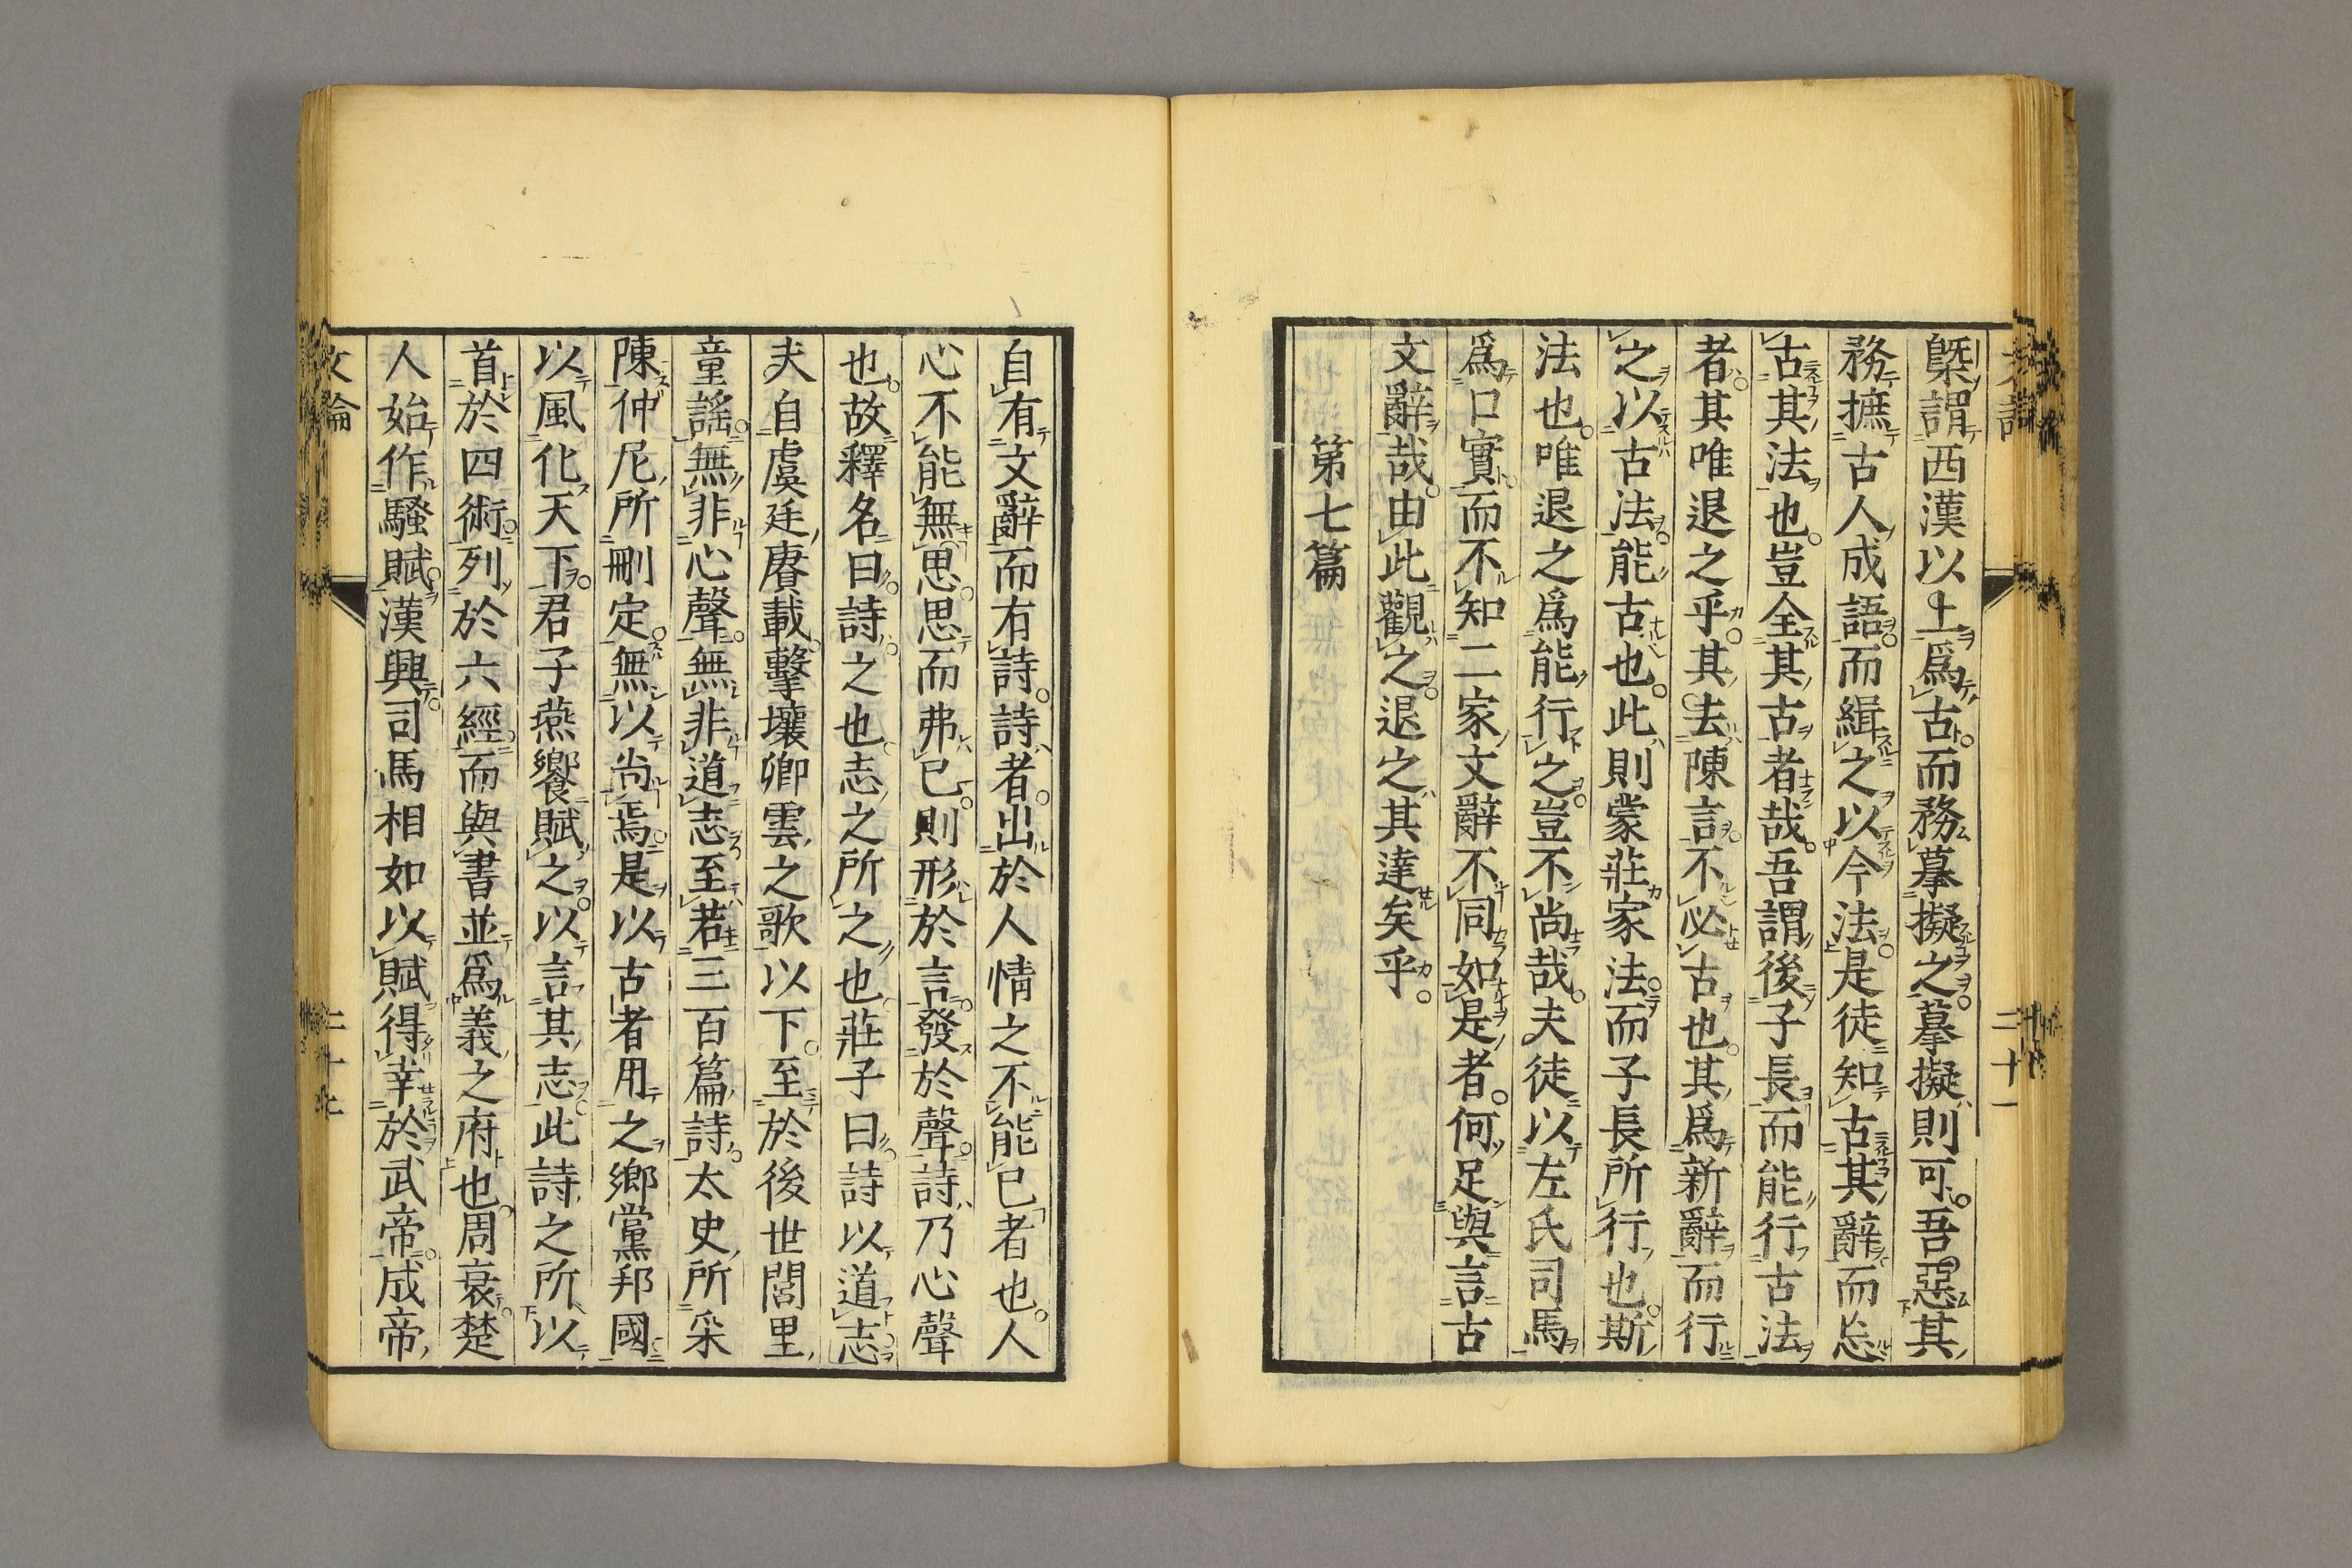 槩謂西漢以上爲古而務摹擬之摹擬則可吾惡其
務摭古人成語而緝之以今法是徒知古其辭而忘
古其法也豈全其古者哉吾謂後子長而能行古法
者其唯退之乎其去陳言不必古也其爲新辭而行
之以古法能古也此則蒙莊家法而子長所行也斯
法也唯退之爲能行之豈不尚哉夫徒以左氏司馬
爲口實而不知二家文辭不同如是者何足與言古
文辭哉由此觀之退之其達矣乎
第七篇
自有文辭而有詩詩者出於人情之不能已者也人
心不能無思思而弗已則形於言發於聲詩乃心聲
也故釋名曰詩之也志之所之也莊子曰詩以道志
夫自虞廷賡載擊壤卿雲之歌以下至於後世閭里
童謠無非心聲無非道志至若三百篇詩太史所采
陳仲尼所刪定無以尚焉是以古者用之鄉黨邦國
以風化天下君子燕饗賦之以言其志此詩之所以
首於四術列於六經而與書並爲義之府也周衰楚
人始作騷賦漢興司馬相如以賦得幸於武帝成帝
文論